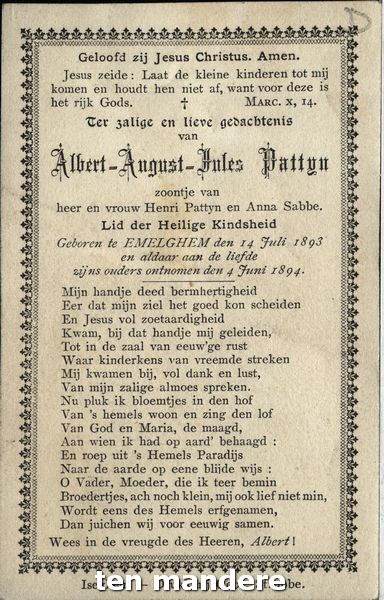 Geloofd zij Jesus Christus. Amen.
Jesus zeide : Laat de kleine kinderen tot mij
komen en houdt hen niet af, want voor deze is
het rijk Gods. † MARC. X, 14.
Ter zalige en lieve gedachtenis
van
Albert-August-Jules Pattyn
zoontje van
heer en vrouw Henri Pattyn en Anna Sabbe.
Lid der Heilige Kindsheid
Geboren te EMELGHEM den 14 Juli 1893
en aldaar aan de liefde
zijns ouders ontnomen den 4 Juni 1894.
Mijn handje deed bermhertigheid
Eer dat mijn ziel het goed kon scheiden
En Jesus vol zoetaardigheid
Kwam, bij dat handje mij geleiden,
Tot in de zaal van eeuw'ge rust
Waar kinderkens van vreemde streken
Mij kwamen bij, vol dank en lust,
Van mijn zalige almoes spreken.
Nu pluk ik bloemtjes in den hof
Van 's hemels woon en zing den lof
Van God en Maria, de maagd,
Aan wien ik had op aard' behaagd :
En roep uit 's Hemels Paradijs
Naar de aarde op eene blijde wijs :
O Vader, Moeder, die ik teer bemin
Broedertjes, ach noch klein, mij ook lief niet min,
Wordt eens des Hemels erfgenamen,
Dan juichen wij voor eeuwig samen.
Wees in de vreugde des Heeren, Albert!
ten mandere